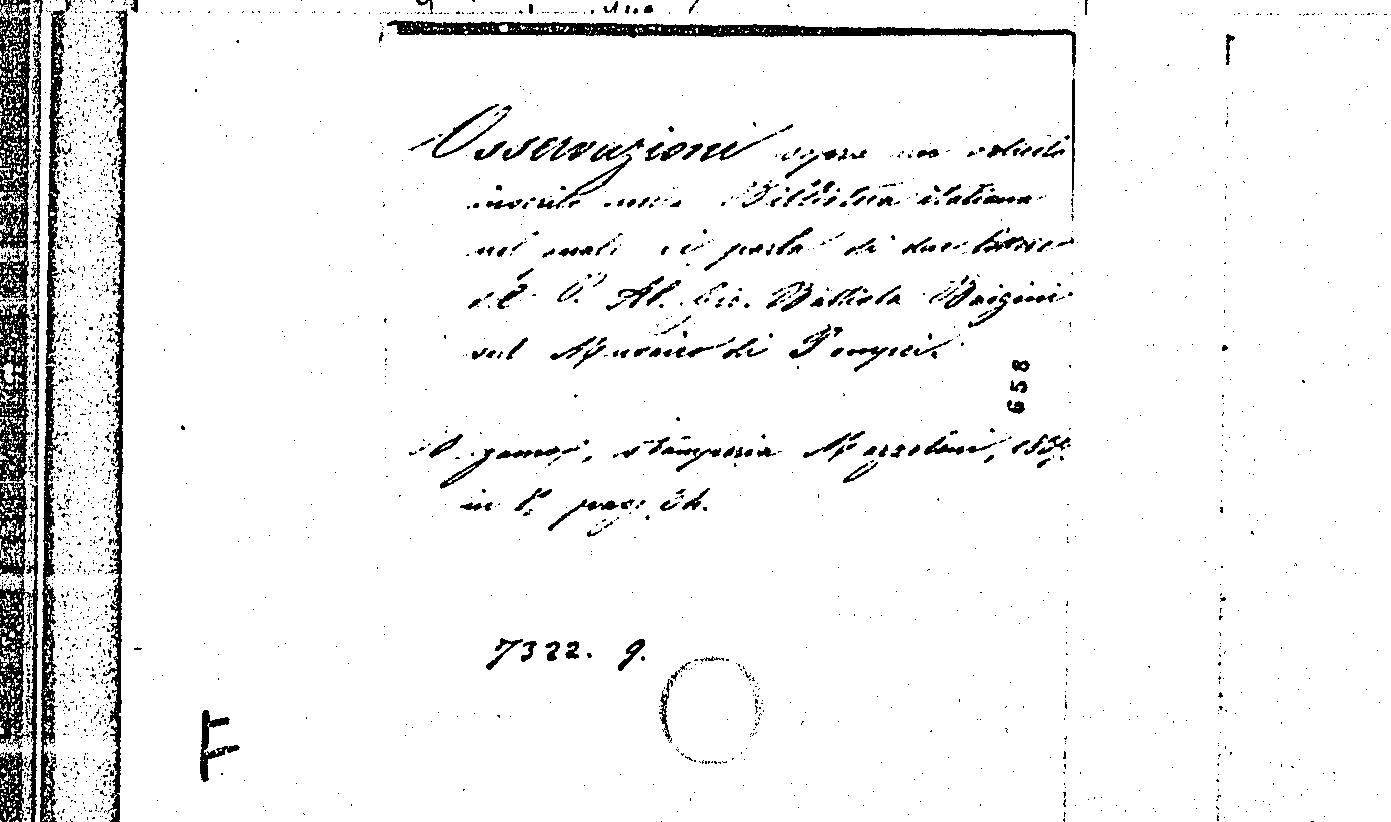 Osservazioni sopra un articolo
inserito nella Biblioteca italiana
nel quale si parla di due lettere
del P. Ab. Gio. Battista
sul Musaico di Pompei.
658
Bergamo, stamperia Mazzoleni,
in 8º pag. 34.
7322. 9.
F